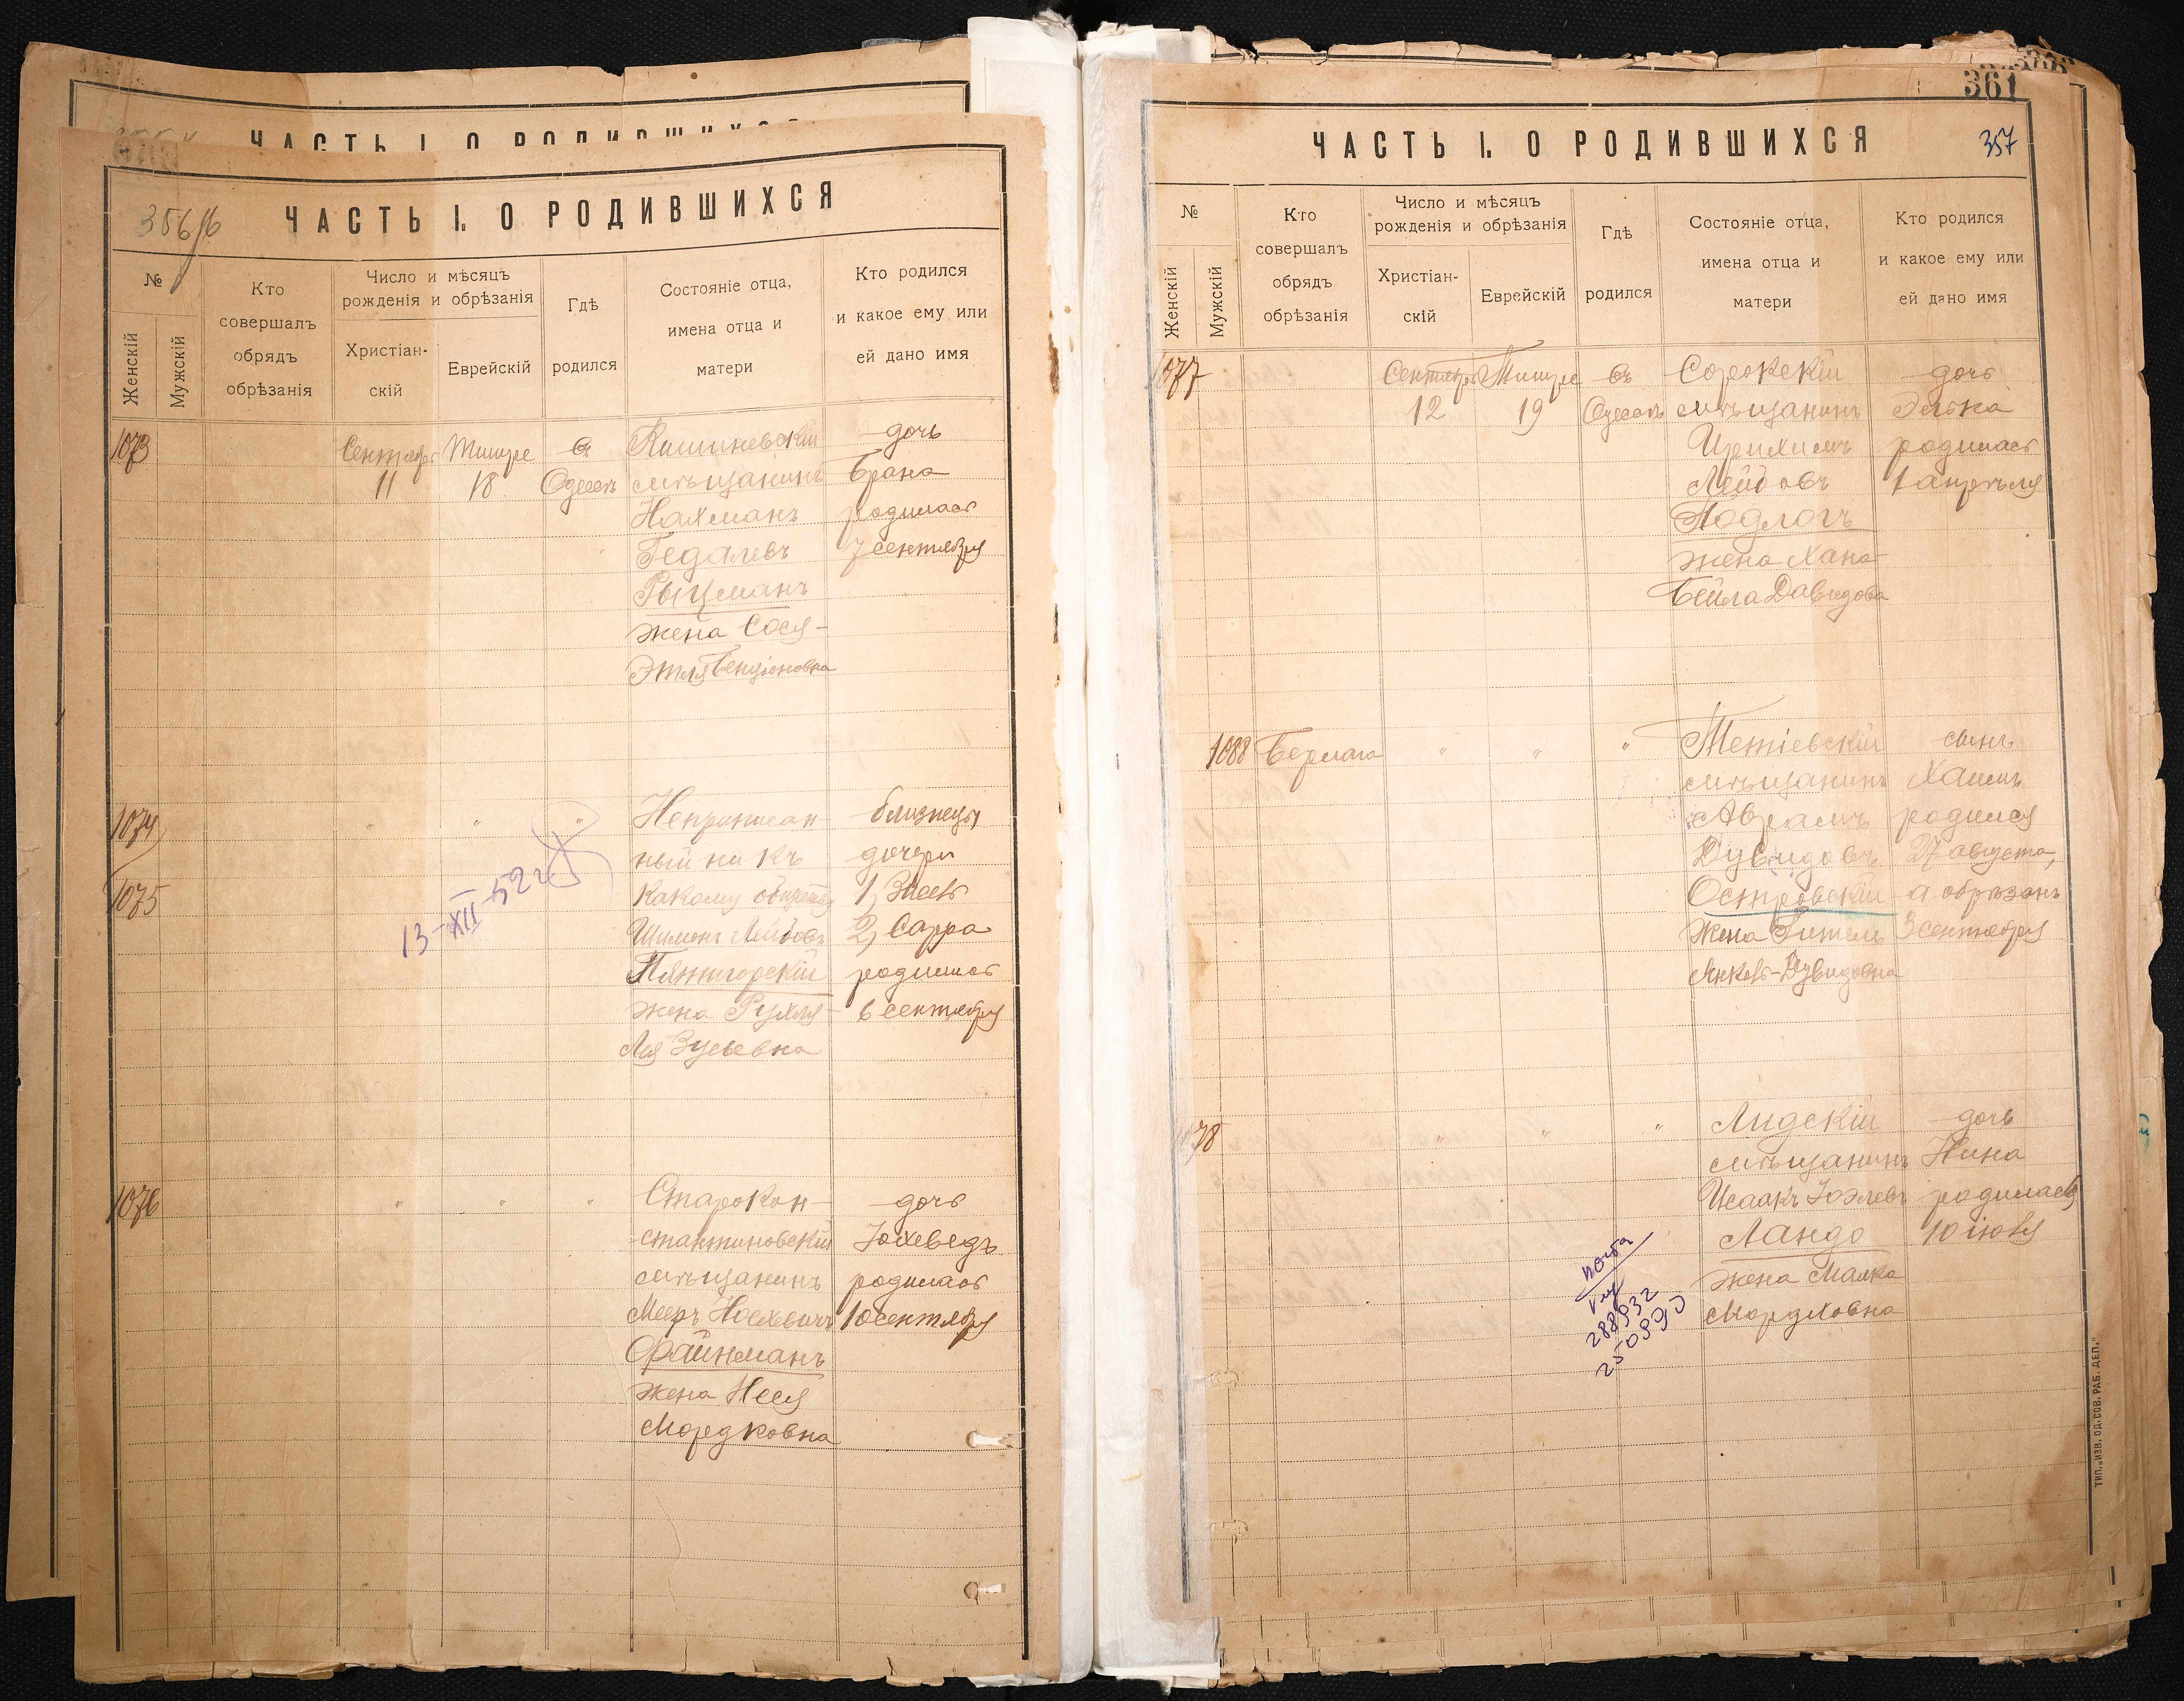 ЧАСТЬ I. О РОДИВШИХСЯ
356 об
ЧАСТЬ I. О РОДИВШИХСЯ
№
Женскій
Мужскій
Кто
совершалъ
обрядъ
обрѣзанія
Число и мѣсяцъ
рожденія и обрѣзанія
Христіан-
скій
Еврейскій
Гдѣ
родился
Состояніе отца,
имена отца и
матери
Кто родился
и какое ему или
ей дано имя
1073
Сентября
11
Тишре
18
въ
Одессѣ
Кишиневскій
мѣщанинъ
Нахманъ
Гедалевъ
Рыцманъ
жена Сося-
Этля Бенціоновна
дочь
Брана
родилась
7 сентября
1074
1075
" " "
13-XII-52 г.
Неприписан-
ный ни къ
какому обществу
Шимонъ Лейбовъ
Пятигорскій
жена Рухля-
Лея Зусьевна
близнецы
дочери
1)
2) Сарра
родились
6 сентября
1076
" " "
Старокон-
стантиновскій
мѣщанинъ
Мееръ
Файнманъ
жена Неся
Мордковна
дочь
Іохеведъ
родилась
10 сентября
361
ЧАСТЬ I. О РОДИВШИХСЯ
357
№
Женскій
Мужскій
Кто
совершалъ
обрядъ
обрѣзанія
Число и мѣсяцъ
рожденія и обрѣзанія
Христіан-
скій
Еврейскій
Гдѣ
родился
Состояніе отца,
имена отца и
матери
Кто родился
и какое ему или
ей дано имя
1077
Сентября
12
Тишре
19
въ
Одессѣ
Сорокскій
мѣщанинъ
Лейбовъ
Подлогъ
жена Хана-
Бейла Давидова
дочь
Элька
родилась
1 апрѣля
1088
" " "
Тетіевскій
мѣщанинъ
Аврамъ
Дувидовъ
Островскій
жена Гитель
Янкель-Дувидовна
сынъ
Хаимъ
родился
27 августа,
а обрѣзанъ
3 сентября
1078
" " "
Лидскій
мѣщанинъ
Исаакъ Іоэлевъ
Ландо
жена Малка
Мордховна
дочь
Нина
родилась
10 іюля
288932
250890
ТИП. „ИЗВ. ОД. СОВ. РАБ. ДЕП."